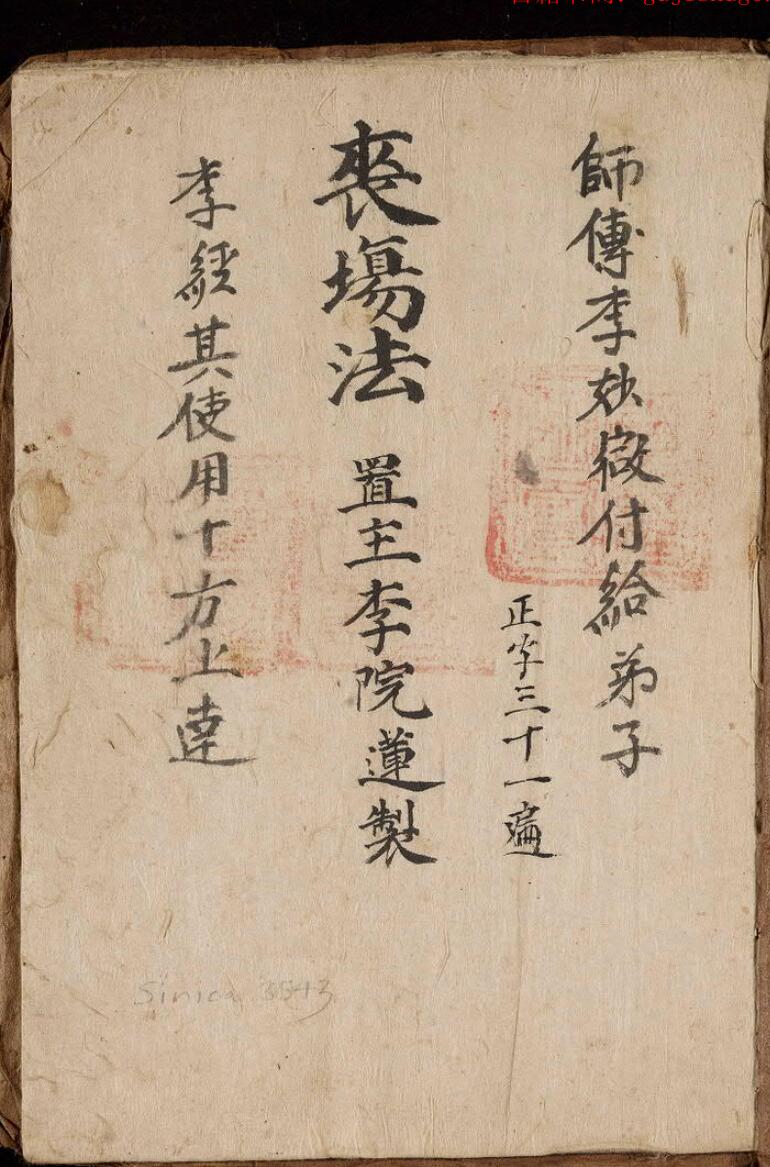 師傅李妙微付給弟子
正字三十一遍
喪塲法 置主李院蓮製
李經其使用十方上達
Sinica 3543